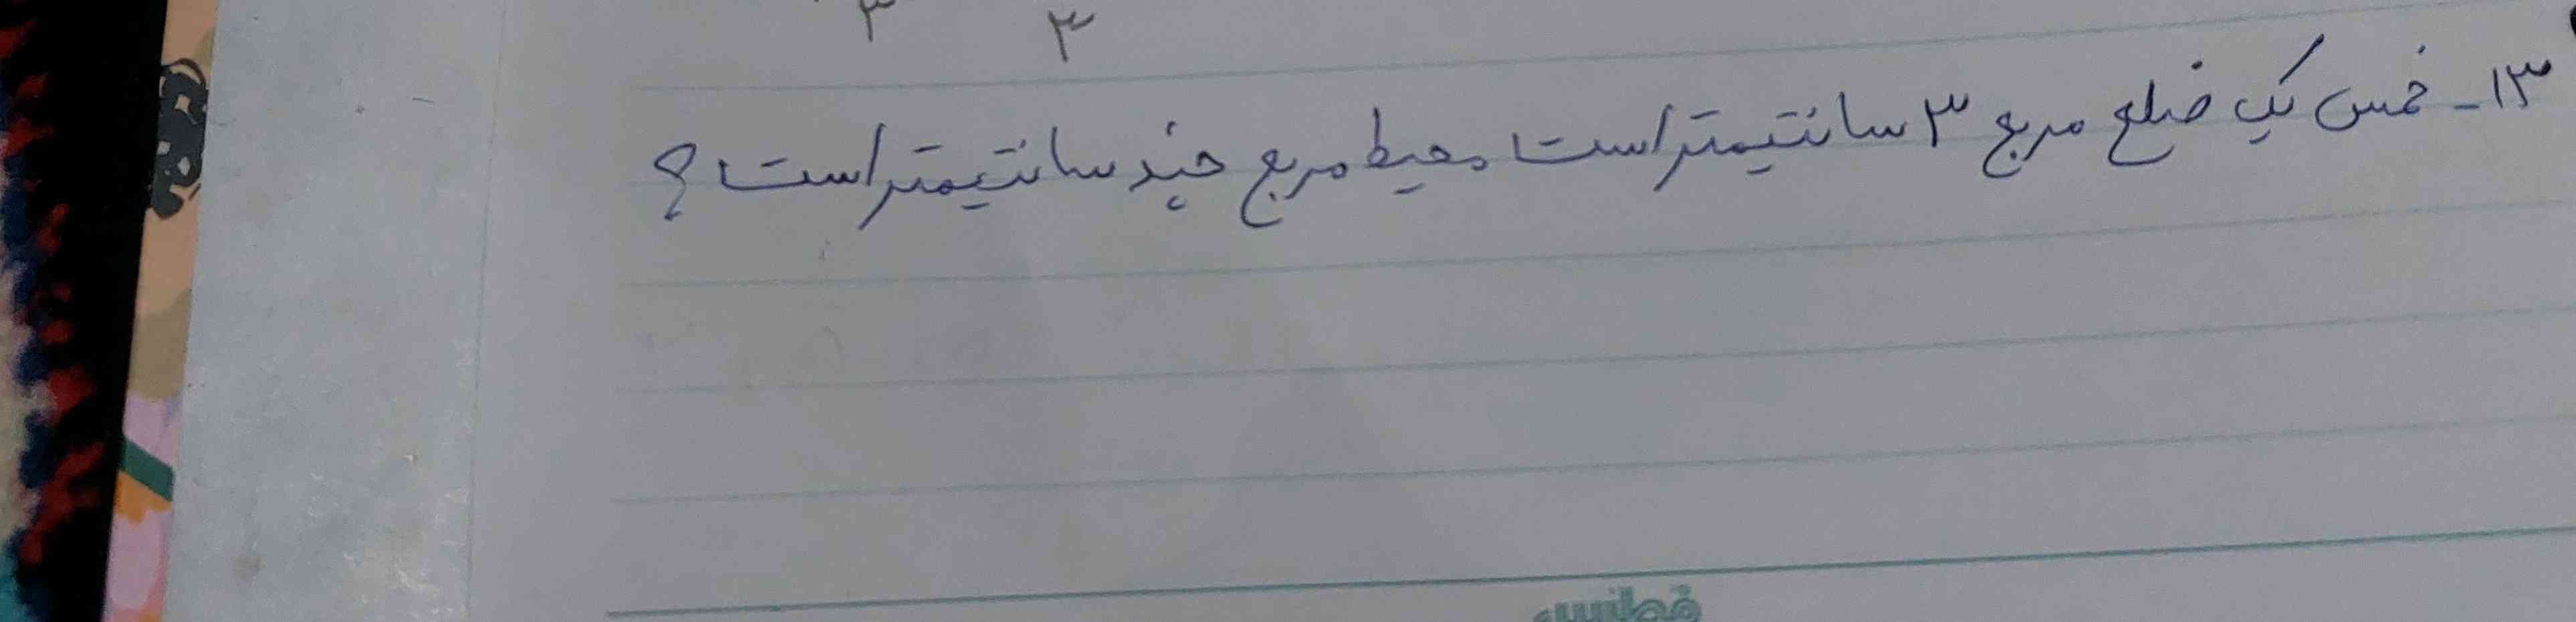 ۳ ۳
۱۳- خمس یک ضلع مربع ۳ سانتیمتر است محیط مربع چند سانتیمتر است؟